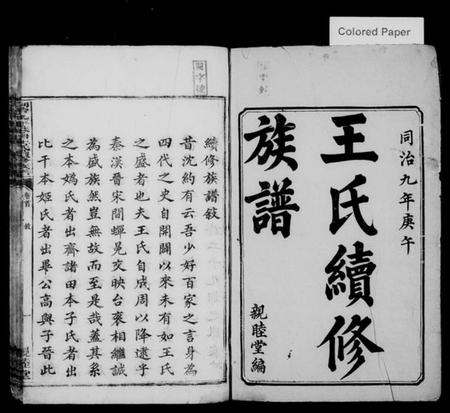 Colored Paper
同治九年庚午
王氏續修
族譜
親睦堂編
續修族譜敘
昔沈約有云吾少好百家之言身為
四代之史自開闢以來未有如王氏
之盛者也夫王氏自成周以降遠乎
秦漢晉宋間蟬冕交映台袞相繼誠
為盛族然豈無故而至是哉蓋其系
之本媯氏者出齊諸田本子氏者出
比干本姬氏者出畢公高與子晉此